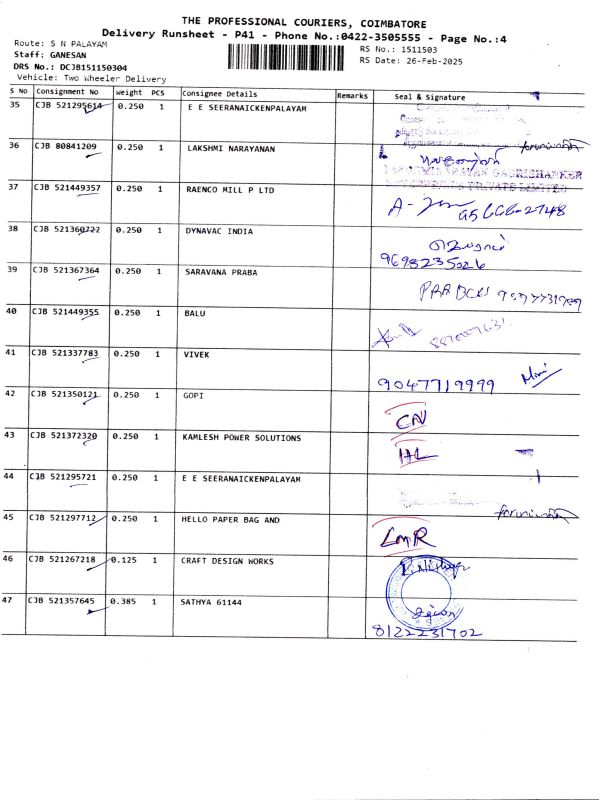 THE PROFESSIONAL COURIERS, COIMBATORE
Delivery Runsheet - P41 - Phone No.:0422-3505555 - Page No.:4
Route: S N PALAYAM
Staff: GANESAN
DRS No.: DCJB151150304
Vehicle: Two Wheeler Delivery
RS No.: 1511503
RS Date: 26-Feb-2025
S No Consignment No Weight PCS Consignee Details Remarks Seal & Signature
35 CJB 521295614 0.250 1 E E SEERANAICKENPALAYAM
36 CJB 80841209 0.250 1 LAKSHMI NARAYANAN
37 CJB 521449357 0.250 1 RAENCO MILL P LTD
38 CJB 521360722 0.250 1 DYNAVAC INDIA
9698235026
39 CJB 521367364 0.250 1 SARAVANA PRABA
40 CJB 521449355 0.250 1 BALU
41 CJB 521337783 0.250 1 VIVEK
9047719999
42 CJB 521350121 0.250 1 GOPI
CN
43 CJB 521372320 0.250 1 KAMLESH POWER SOLUTIONS
HL
44 CJB 521295721 0.250 1 E E SEERANAICKENPALAYAM
45 CJB 521297712 0.250 1 HELLO PAPER BAG AND
LMR
46 CJB 521267218 0.125 1 CRAFT DESIGN WORKS
47 CJB 521357645 0.385 1 SATHYA 61144
8122231702